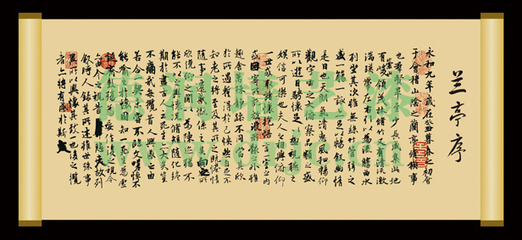 兰亭序
永和九年歲在癸丑暮春之初會
于會稽山陰之蘭亭脩禊事
也羣賢畢至少長咸集此地
有崇山峻領茂林脩竹又有清流激
湍映帶左右引以為流觴曲水
列坐其次雖無絲竹管弦之
盛一觴一詠亦足以暢敘幽情
是日也天朗氣清惠風和暢仰
觀宇宙之大俯察品類之盛
所以遊目騁懷足以極視聽之
娛信可樂也夫人之相與俯仰
一世或取諸懷抱悟言一室之內
或因寄所託放浪形骸之外雖
趣舍萬殊靜躁不同當其欣
於所遇暫得於己怏然自足不
知老之將至及其所之既惓情
隨事遷感慨係之矣向之所
欣俛仰之閒以為陳迹猶不
能不以之興懷況脩短隨化終
期於盡古人云死生亦大矣豈
不痛哉每攬昔人興感之由
若合一契未嘗不臨文嗟悼不
能喻之於懷固知一死生為虛
誕齊彭殤為妄作後之視今
亦由今之視昔悲夫故列
敘時人錄其所述雖世殊事
異所以興懷其致一也後之攬
者亦將有感於斯文